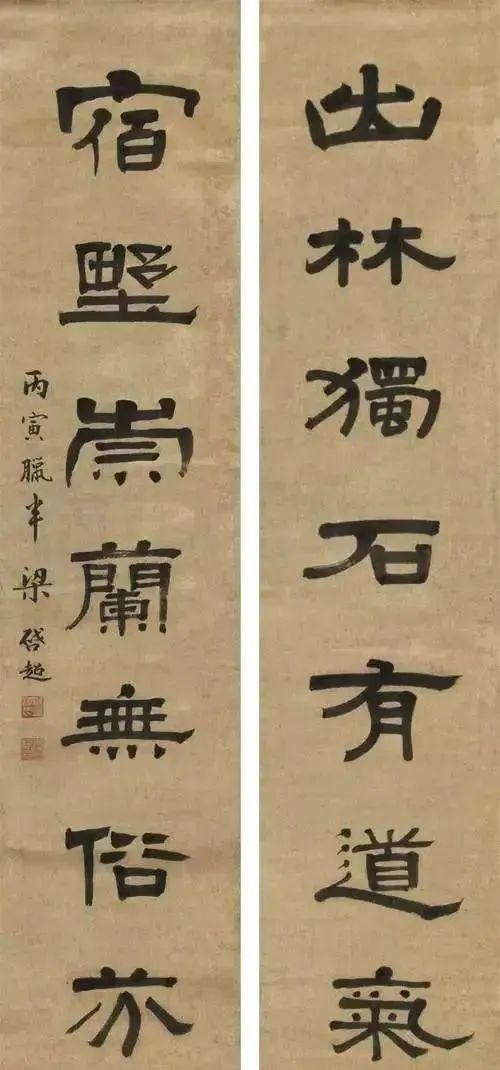 出林獨石有道氣
宿野崇蘭無俗芬
丙寅臘半 梁啓超